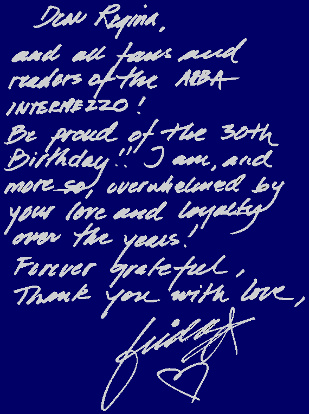 Dear Regina,
and all fans and
readers of the ABBA
INTERMEZZO!
Be proud of the 30th
Birthday!! I am, and
more so, overwhelmed by
your love and loyalty
over the years!
Forever grateful,
Thank you with love,
Frida